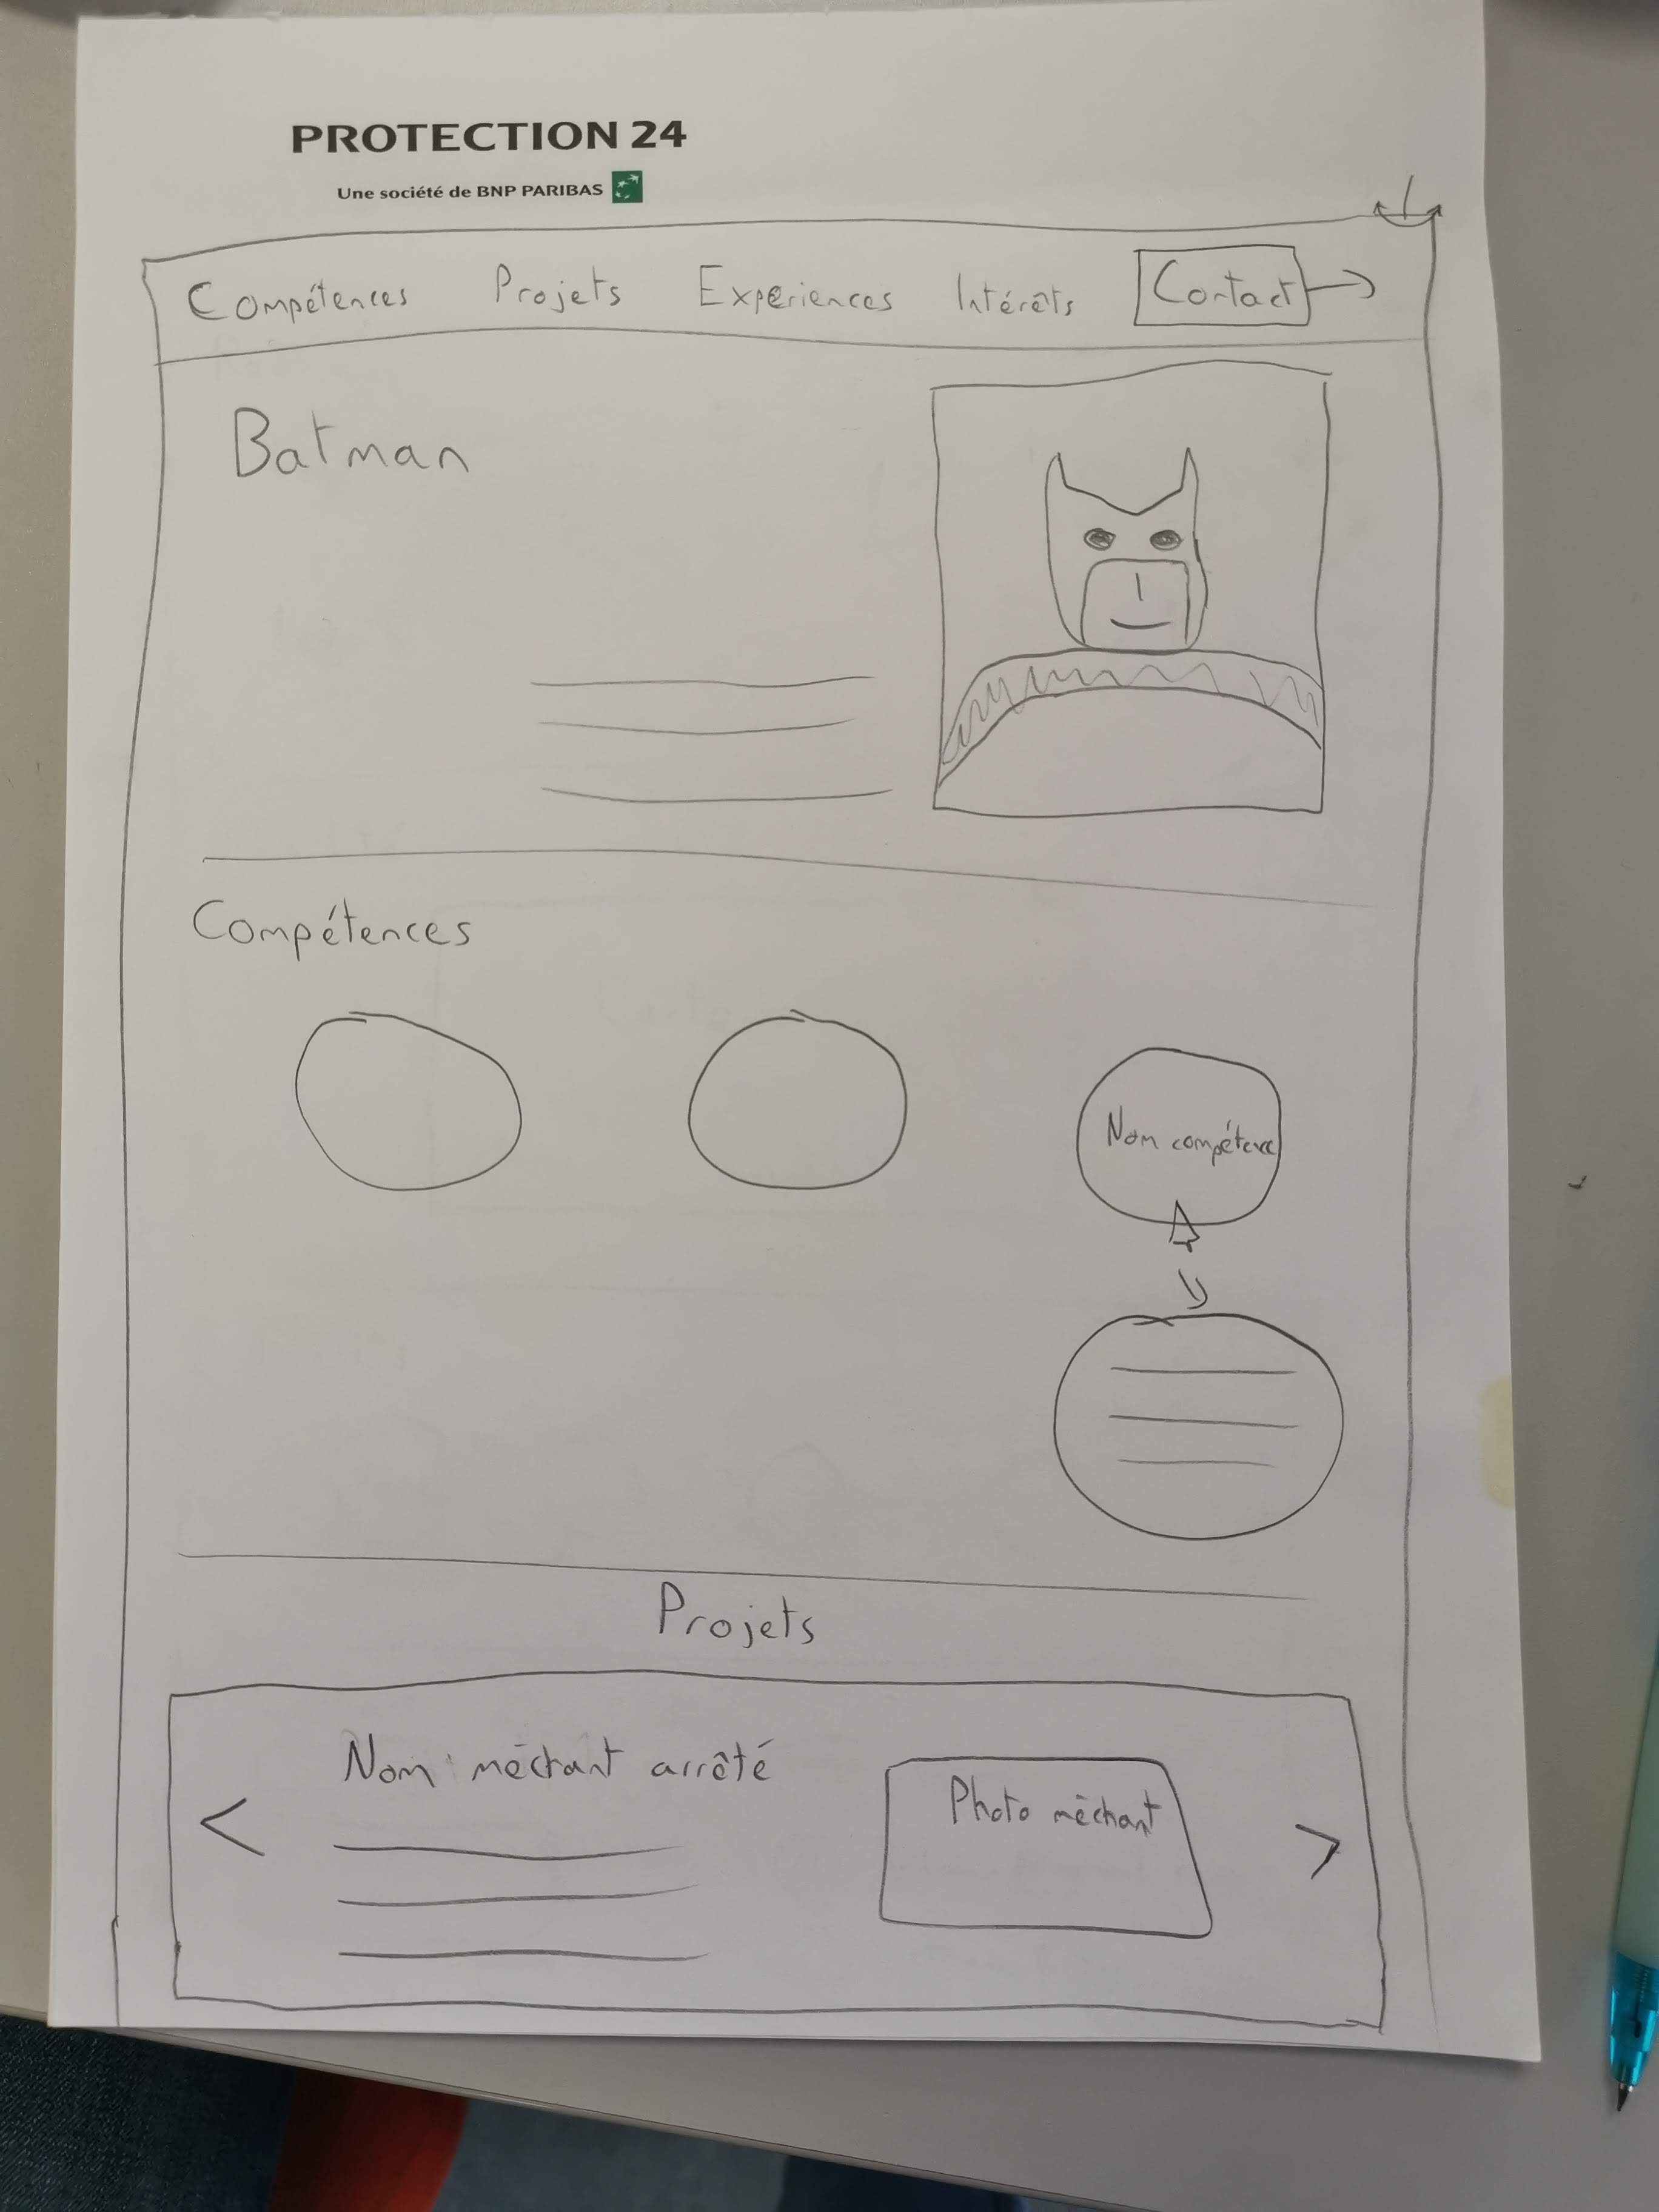 PROTECTION 24
Une société de BNP PARIBAS
Compétences Projets Experiences Intérêts Contact
Batman
Compétences
Nom compétence
Projets
Nom méchant arrêté
Photo méchant